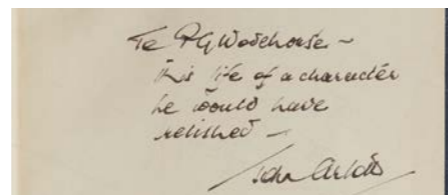 To P G Wodehouse –
this life of a character
he would have
relished –
John Arlott